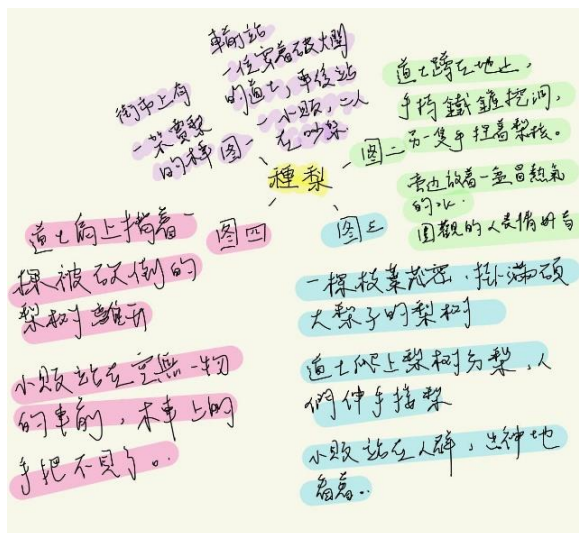 種梨
图一
街市上有
一架賣梨
的車
車前站
一位穿着破大褂
的道士,車後站
一小贩,二人
在吵架
图二
道士蹲在地上,
手持鐵鏟挖洞,
另一隻手捏着梨核。
旁边放着一壶冒熱氣
的水.
圍觀的人表情好奇
图三
一棵枝葉茂密,掛滿碩
大梨子的梨树
道士爬上梨树分梨,人
們伸手接梨
小贩站在人群,出神地
看着..
图四
道士肩上揹着一
棵被砍倒的
梨树離开
小贩站在空無一物
的車前,木車上的
手把不見了。.